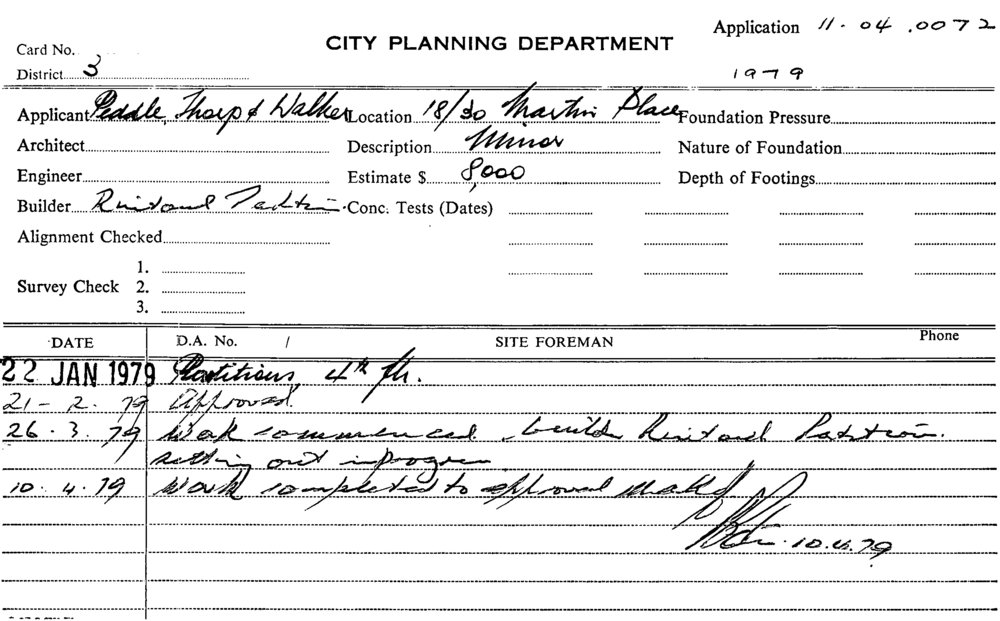 Application 11.04.0072
Card No.
CITY PLANNING DEPARTMENT
District 3
1979
Applicant Peddle, Thorp & Walker Location 18/30 Martin Place Foundation Pressure
Architect Description Minor Nature of Foundation
Engineer Estimate $ 8,000 Depth of Footings
Builder Rintoul Conc. Tests (Dates)
Alignment Checked
1.
Survey Check 2.
3.
DATE D.A. No. / SITE FOREMAN Phone
22 JAN 1979 Partitions, 4th flr.
21-2.79 Approved.
26.3.79 Work commenced, builder Rintoul Partition.
setting out in progress
10.4.79 Work completed to approval
10.4.79